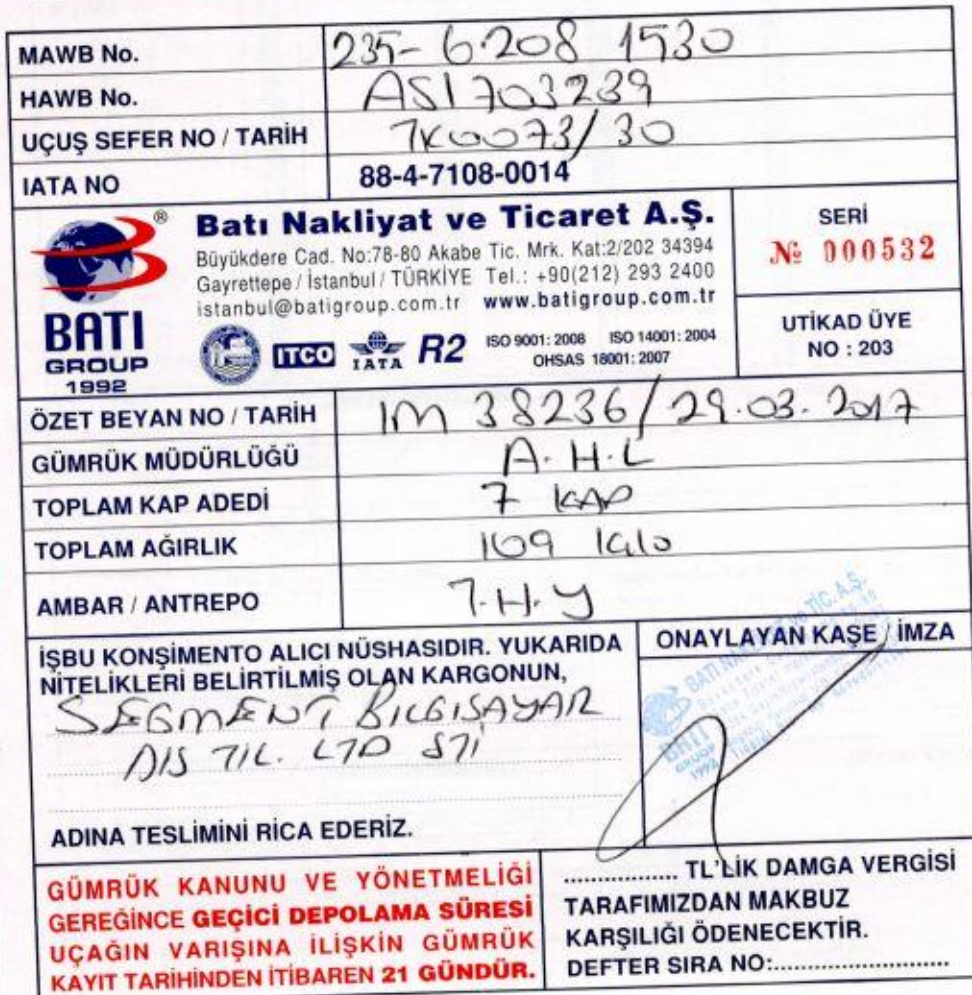 MAWB No. 235-6208 1530
HAWB No. ASI703239
UÇUŞ SEFER NO / TARİH TK0073/30
IATA NO 88-4-7108-0014
®
BATI
GROUP
1992
Batı Nakliyat ve Ticaret A.Ş.
Büyükdere Cad. No:78-80 Akabe Tic. Mrk. Kat:2/202 34394
Gayrettepe / İstanbul / TÜRKİYE Tel.: +90(212) 293 2400
istanbul@batigroup.com.tr www.batigroup.com.tr
ITCO IATA R2 ISO 9001: 2008 ISO 14001: 2004
OHSAS 18001: 2007
SERİ
№ 000532
UTİKAD ÜYE
NO : 203
ÖZET BEYAN NO / TARİH IM 38236/29.03.2017
GÜMRÜK MÜDÜRLÜĞÜ A.H.L
TOPLAM KAP ADEDİ 7 KAP
TOPLAM AĞIRLIK 109 kilo
AMBAR / ANTREPO T.H.Y
İŞBU KONŞİMENTO ALICI NÜSHASIDIR. YUKARIDA
NİTELİKLERİ BELİRTİLMİŞ OLAN KARGONUN,
SEGMENT BILGISAYAR
DIS TIC. LTD STI
ADINA TESLİMİNİ RİCA EDERİZ.
ONAYLAYAN KAŞE / İMZA
BATI NAKLİYAT ve TİC. A.Ş.
BATI
GROUP
1992
GÜMRÜK KANUNU VE YÖNETMELİĞİ
GEREĞİNCE GEÇİCİ DEPOLAMA SÜRESİ
UÇAĞIN VARIŞINA İLİŞKİN GÜMRÜK
KAYIT TARİHİNDEN İTİBAREN 21 GÜNDÜR.
................. TL'LİK DAMGA VERGİSİ
TARAFIMIZDAN MAKBUZ
KARŞILIĞI ÖDENECEKTİR.
DEFTER SIRA NO:..........................